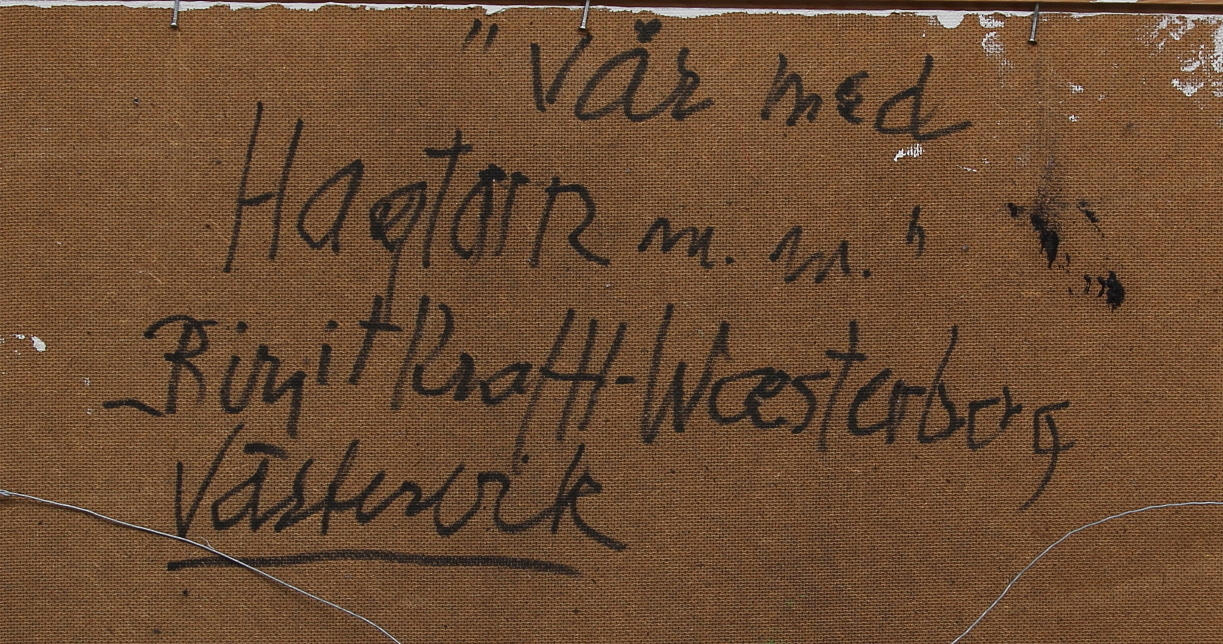 "Vår med
Hagtorn m.m."
Birgit Krafft-Wæsterberg
Västervik